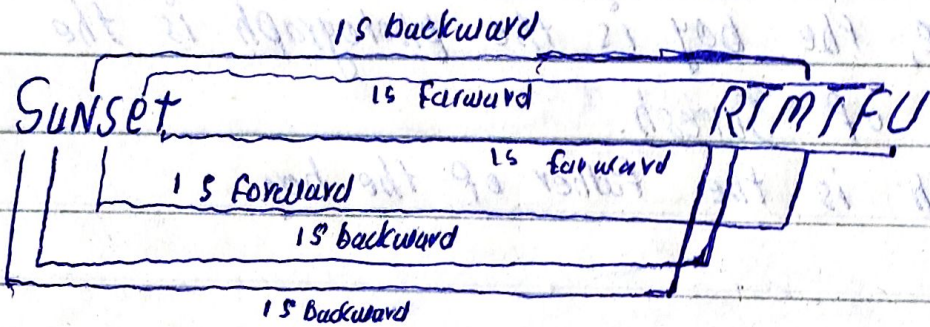 1 S backward
Sunset 1S farward RTMTFU
1S farward
1 S forward
1S backward
1 S Backward